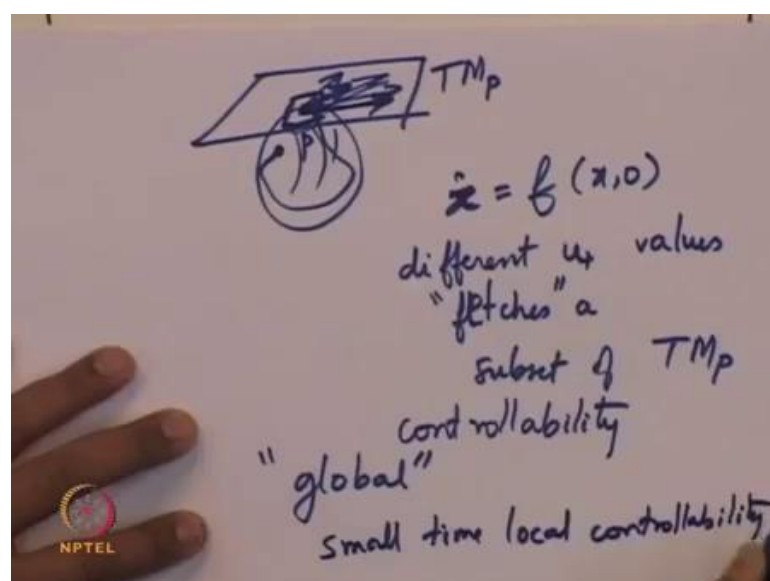 TMp
P
ẋ = f (x,0)
different u values
"fetches" a
subset of TMp
controllability
"global"
small time local controllability
NPTEL